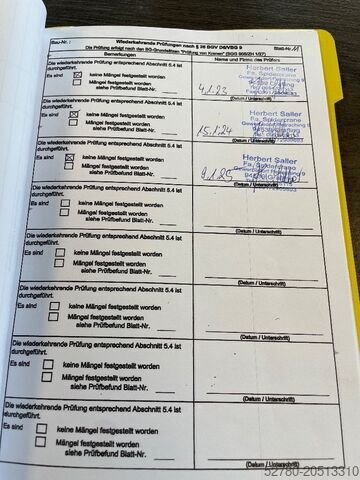 Bau-Nr.: Wiederkehrende Prüfungen nach § 26 BGV D6/VBG 9 Blatt-Nr. 11
Die Prüfung erfolgt nach den BG-Grundsätzen "Prüfung von Kranen" (BGG 905/ZH 1/27)
Bemerkungen Name und Firma des Prüfers
Die wiederkehrende Prüfung entsprechend Abschnitt 5.4 ist
durchgeführt.
Es sind keine Mängel festgestellt worden
Mängel festgestellt worden
siehe Prüfbefund Blatt-Nr.
Herbert Saller
Fa. Spidercrane
4.1.23
(Datum / Unterschrift)
Die wiederkehrende Prüfung entsprechend Abschnitt 5.4 ist
durchgeführt.
Es sind keine Mängel festgestellt worden
Mängel festgestellt worden
siehe Prüfbefund Blatt-Nr.
Herbert Saller
Fa. Spidercrane
15.1.24
(Datum / Unterschrift)
Die wiederkehrende Prüfung entsprechend Abschnitt 5.4 ist
durchgeführt.
Es sind keine Mängel festgestellt worden
Mängel festgestellt worden
siehe Prüfbefund Blatt-Nr.
Herbert Saller
Fa. Spidercrane
9.1.25
(Datum / Unterschrift)
Die wiederkehrende Prüfung entsprechend Abschnitt 5.4 ist
durchgeführt.
Es sind keine Mängel festgestellt worden
Mängel festgestellt worden
siehe Prüfbefund Blatt-Nr.
(Datum / Unterschrift)
Die wiederkehrende Prüfung entsprechend Abschnitt 5.4 ist
durchgeführt.
Es sind keine Mängel festgestellt worden
Mängel festgestellt worden
siehe Prüfbefund Blatt-Nr.
(Datum / Unterschrift)
Die wiederkehrende Prüfung entsprechend Abschnitt 5.4 ist
durchgeführt.
Es sind keine Mängel festgestellt worden
Mängel festgestellt worden
siehe Prüfbefund Blatt-Nr.
(Datum / Unterschrift)
Die wiederkehrende Prüfung entsprechend Abschnitt 5.4 ist
durchgeführt.
Es sind keine Mängel festgestellt worden
Mängel festgestellt worden
siehe Prüfbefund Blatt-Nr.
(Datum / Unterschrift)
Die wiederkehrende Prüfung entsprechend Abschnitt 5.4 ist
durchgeführt.
Es sind keine Mängel festgestellt worden
Mängel festgestellt worden
siehe Prüfbefund Blatt-Nr.
(Datum / Unterschrift)
52780-20513310